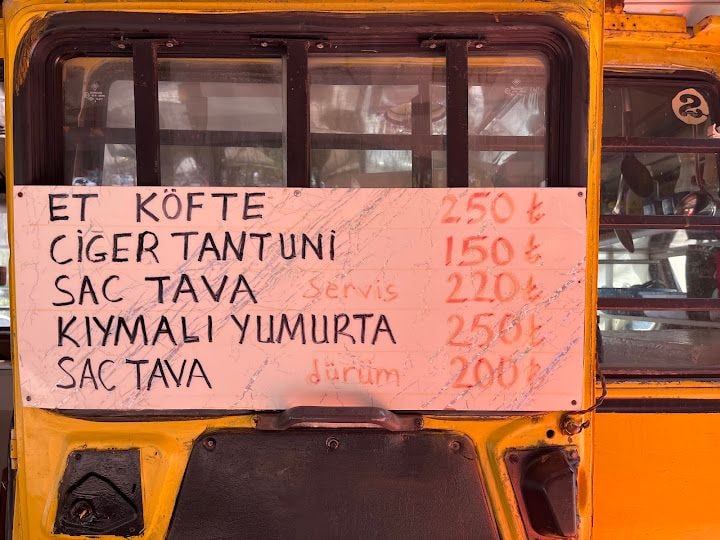 ET KÖFTE 250 ₺
CİGER TANTUNİ 150 ₺
SAC TAVA servis 220 ₺
KIYMALI YUMURTA 250 ₺
SAC TAVA dürüm 200 ₺
2